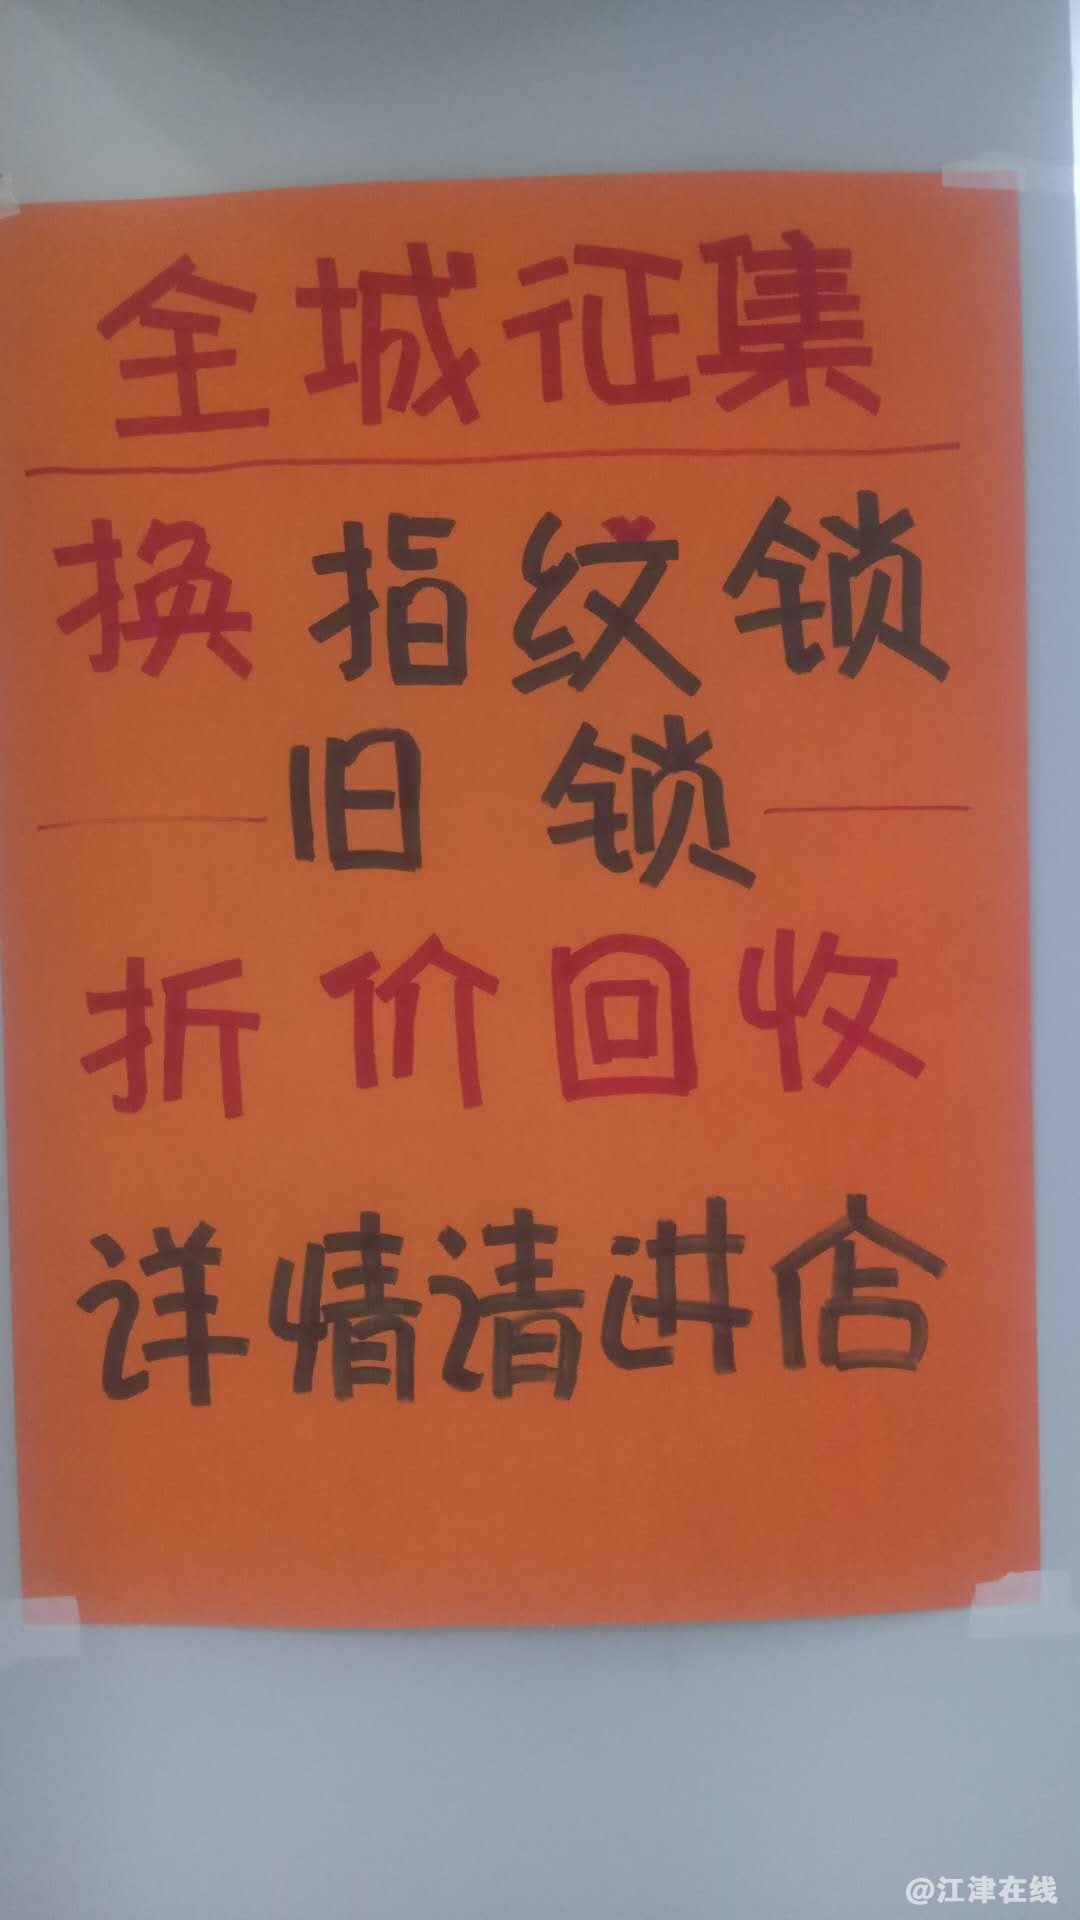 全城征集
换指纹锁
旧锁
折价回收
详情请进店
@江津在线